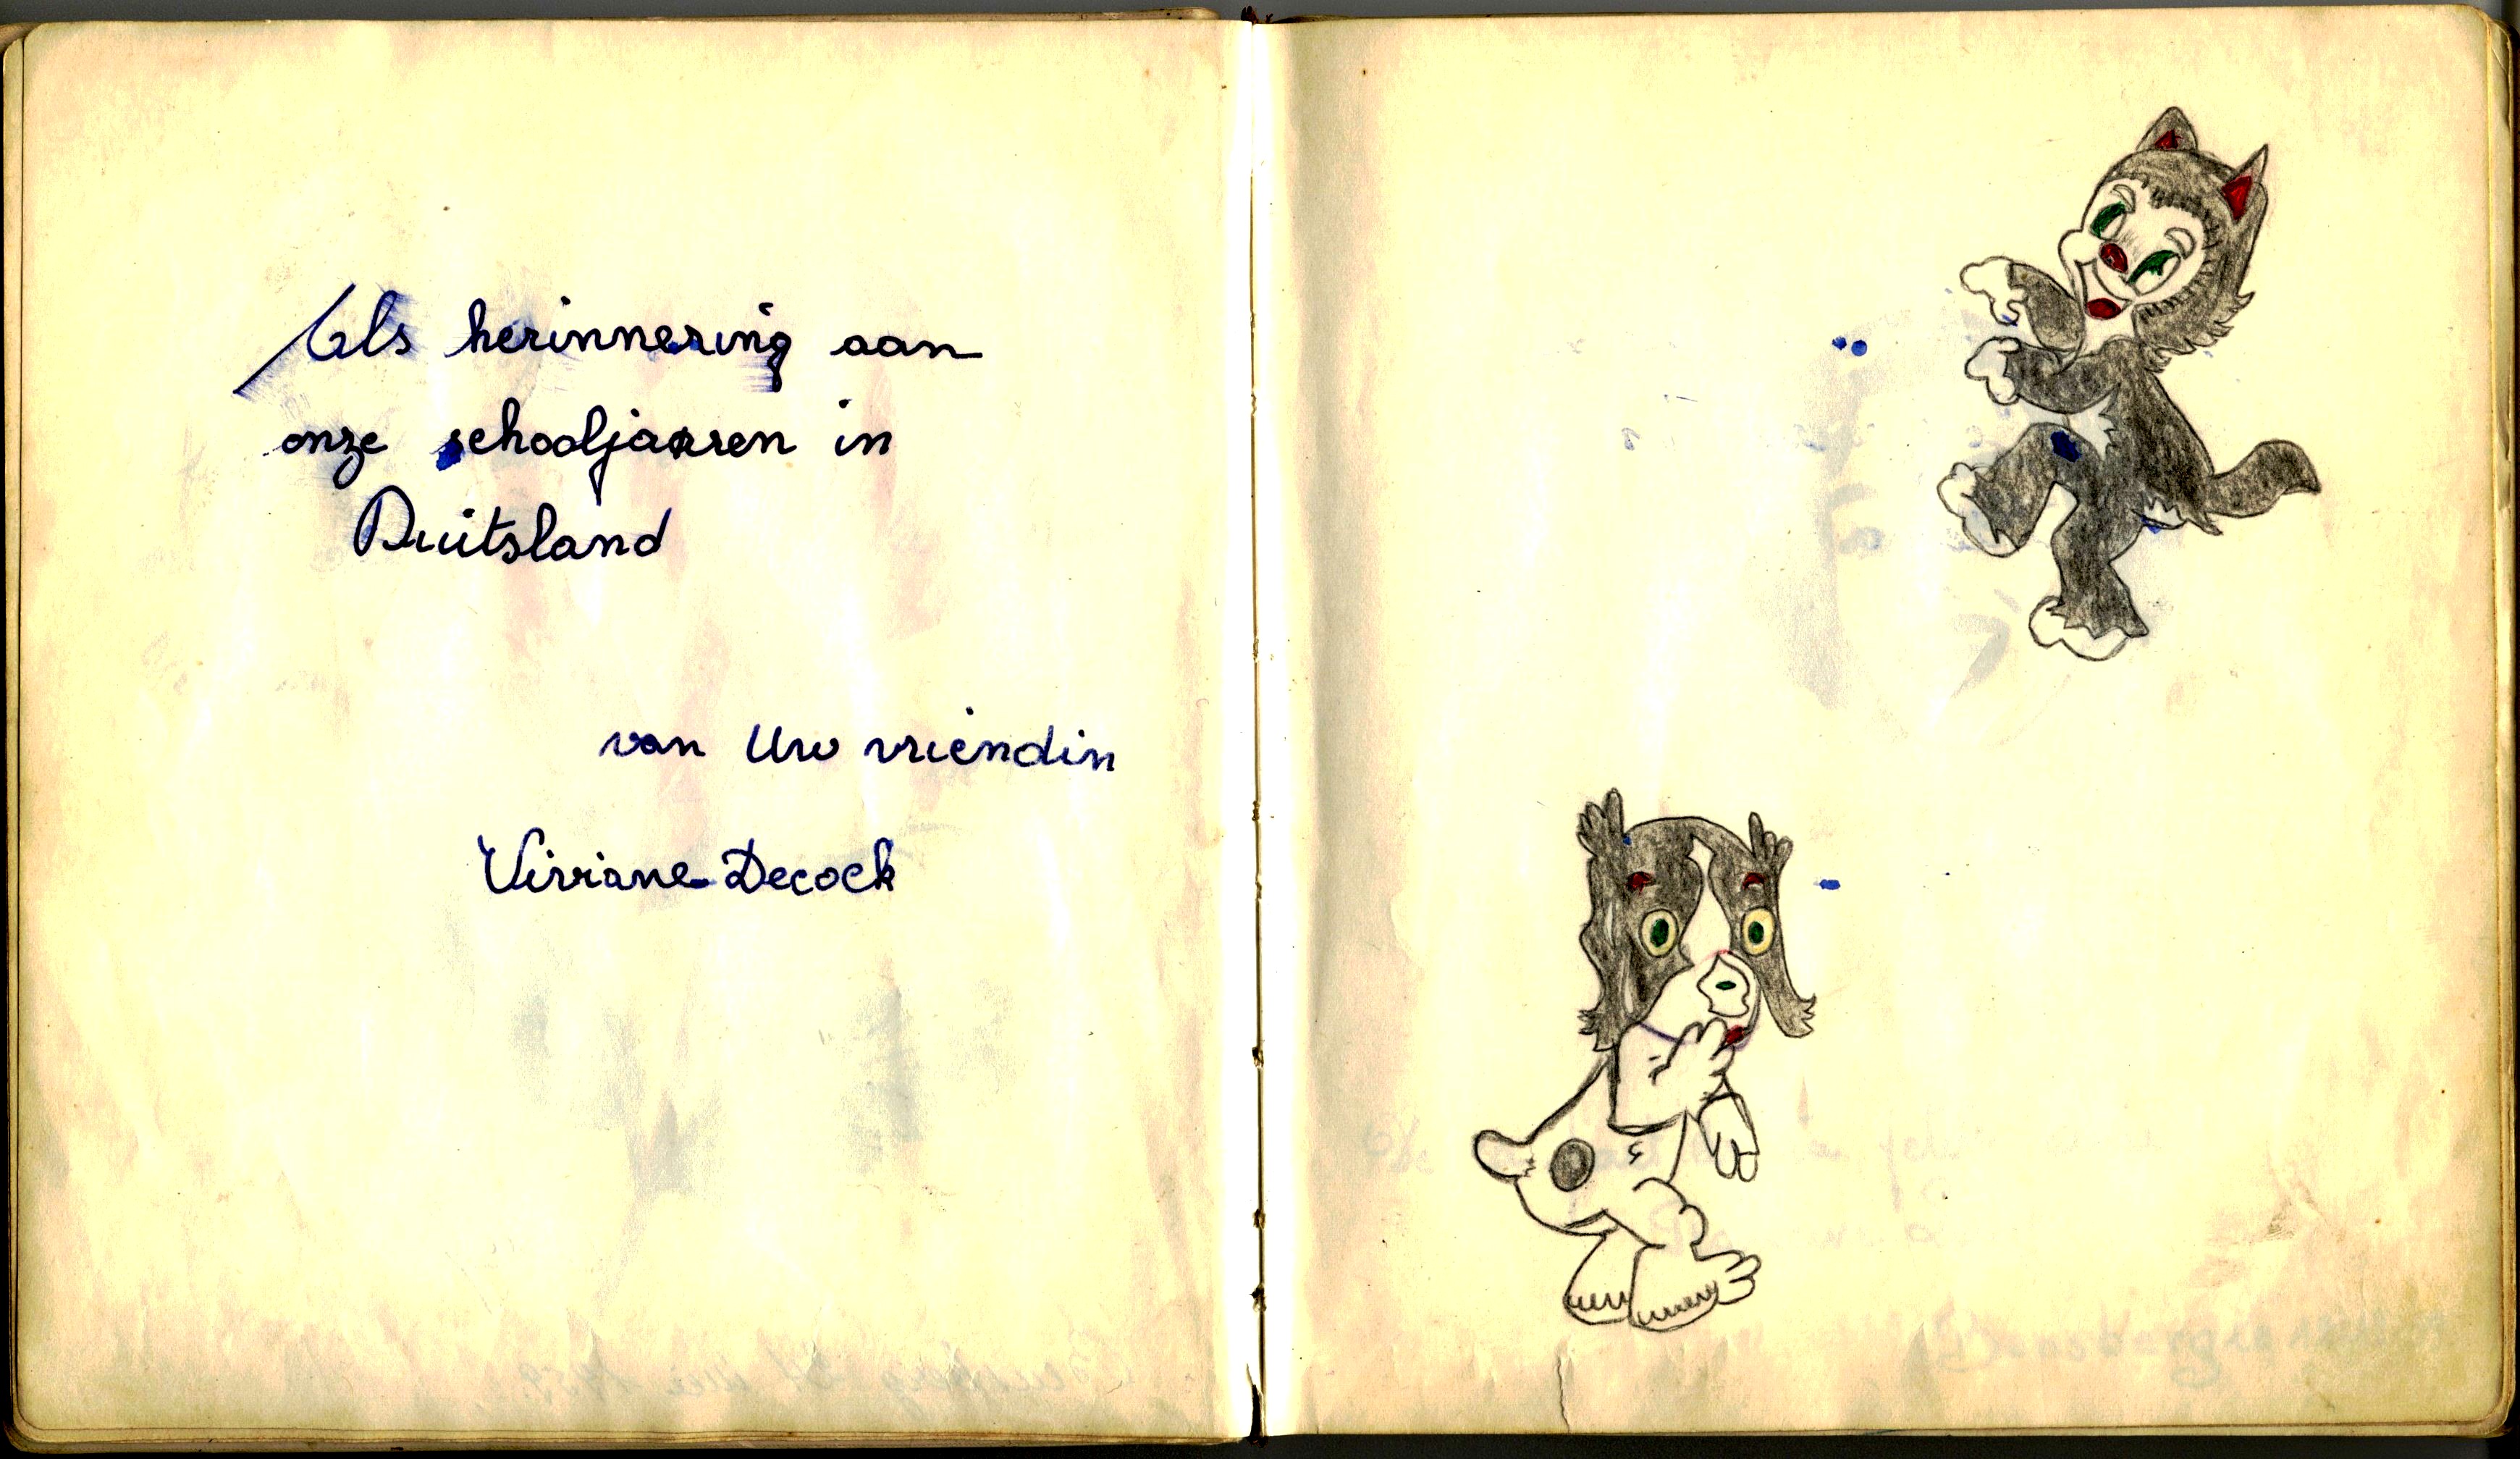 Als herinnering aan
onze schooljaren in
Duitsland
van Uw vriendin
Viviane Decock